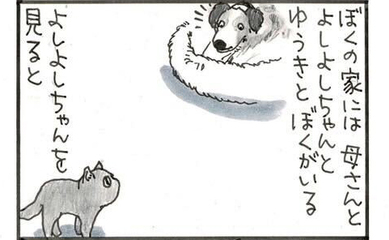 ぼくの家には 母さんと
よしよしちゃんと
ゆうきと ぼくがいる
よしよしちゃんを
見ると